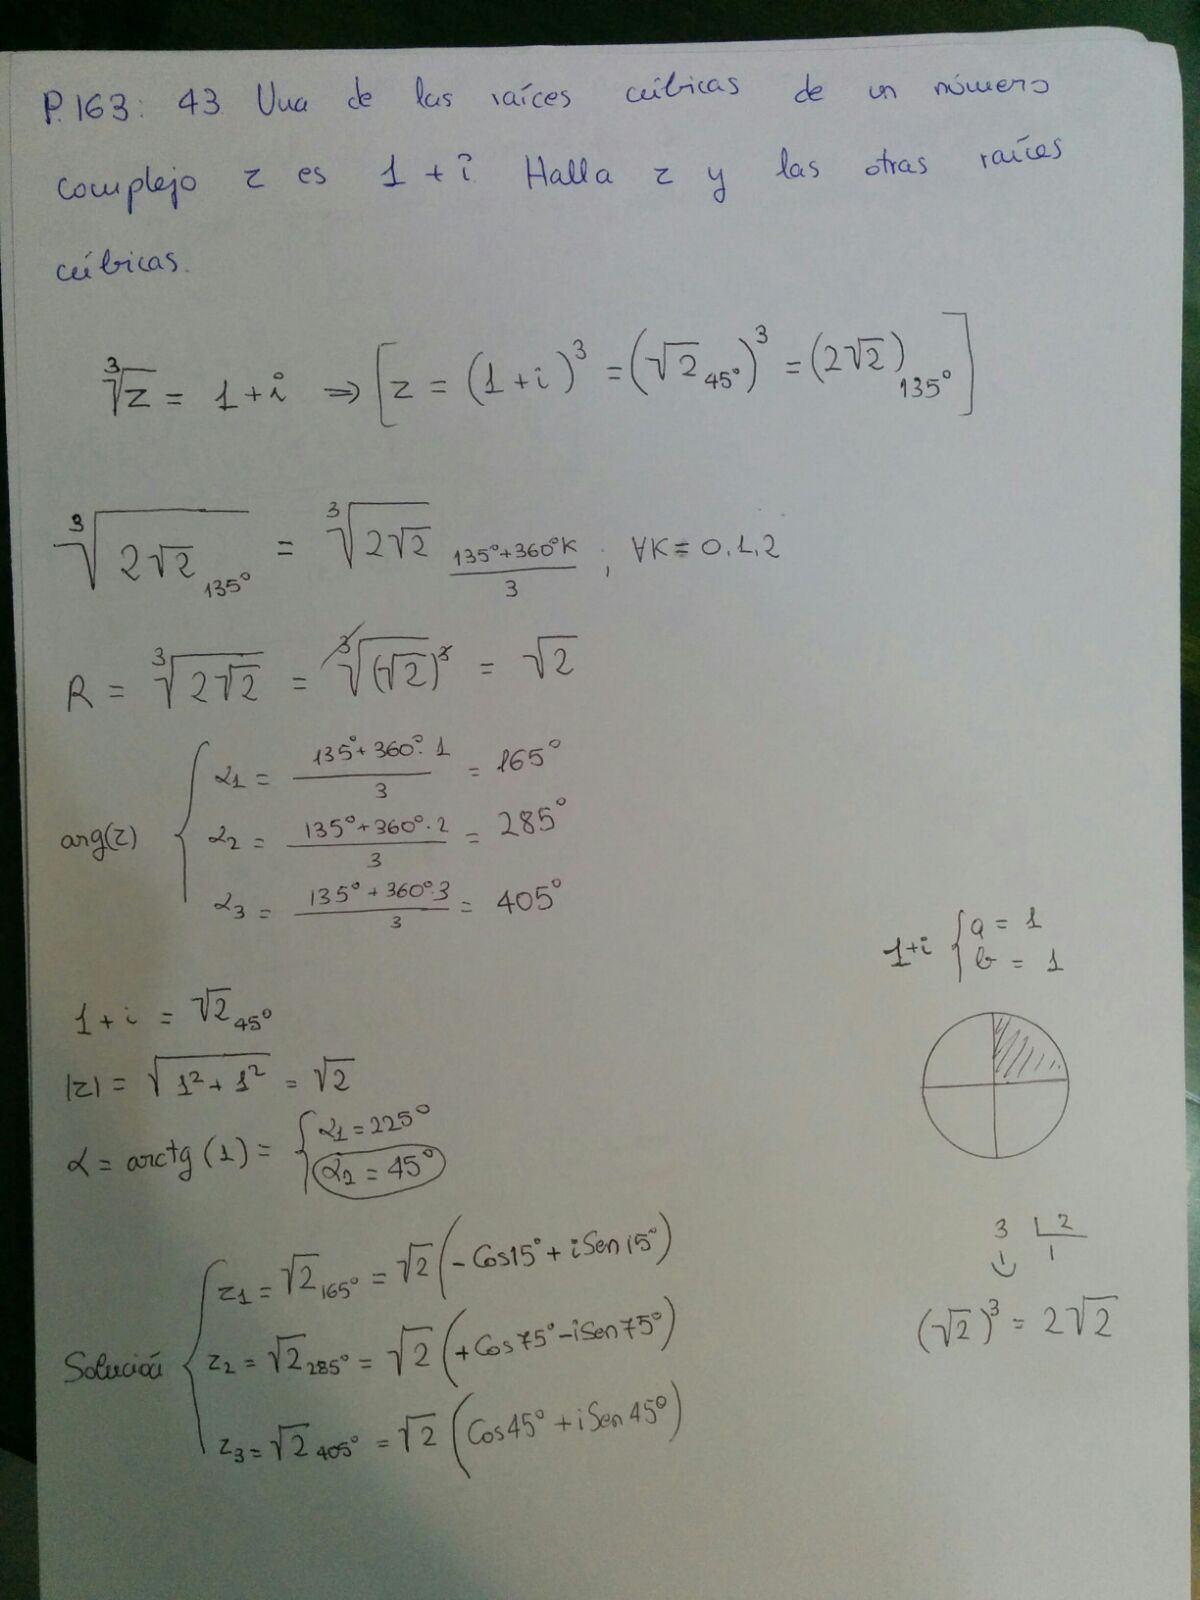 P. 163: 43 Una de las raíces cúbicas de un número
complejo z es 1 + i. Halla z y las otras raíces
cúbicas.
∛z = 1+i ⇒ [z = (1+i)³ = (√2 45°)³ = (2√2) 135°]
∛(2√2 135°) = ∛(2√2) (135°+360°K)/3 ; ∀K = 0,1,2
R = ∛(2√2) = ∛((√2)³) = √2
arg(z) {
α1 = (135°+360°·1)/3 = 165°
α2 = (135°+360°·2)/3 = 285°
α3 = (135°+360°·3)/3 = 405°
1+i { a = 1
b = 1
1+i = √2 45°
|z| = √(1²+1²) = √2
α = arctg (1) = { α1 = 225°
α2 = 45°
3 | 2
1 1
(√2)³ = 2√2
Solución {
z1 = √2 165° = √2 (-Cos15° + i Sen15°)
z2 = √2 285° = √2 (+Cos75° - i Sen75°)
z3 = √2 405° = √2 (Cos45° + i Sen45°)